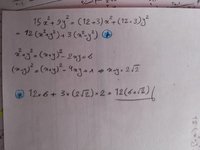 15x²+9y² = (12+3)x²+(12-3)y²
= 12(x²+y²)+3(x²-y²) *
x²+y² = (x+y)²-2xy = 6
(x-y)² = (x+y)²-4xy = 8 ⇒ x-y = 2√2
* 12×6 + 3×(2√2)×2 = 12(6+√2)